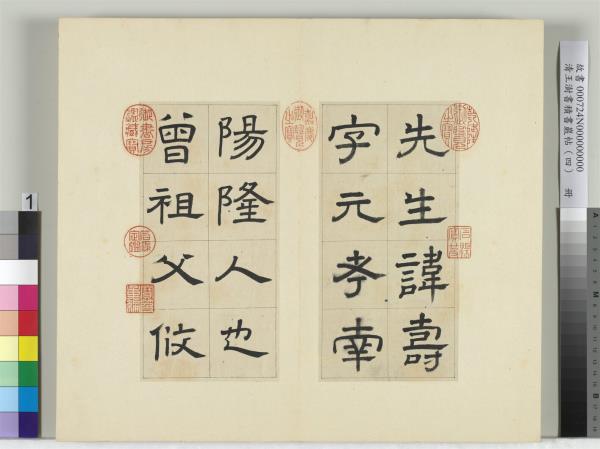 先生諱壽
字元孝南
陽隆人也
曾祖父攸
故書 000724N000000000
清王澍書積書巖帖（四） 冊
1